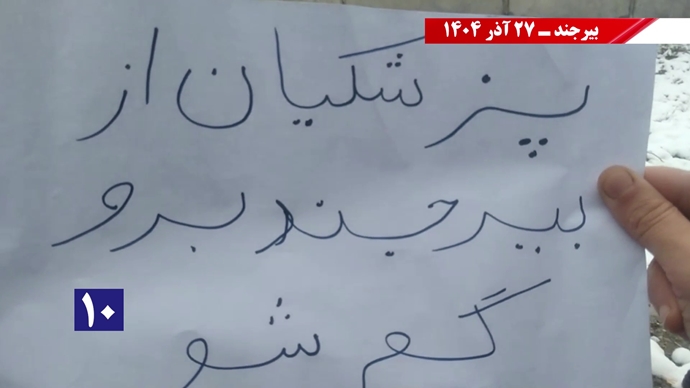 بیرجند ـ ۲۷ آذر ۱۴۰۴
پزشکیان از
بیرجند برو
گم شو
۱۰